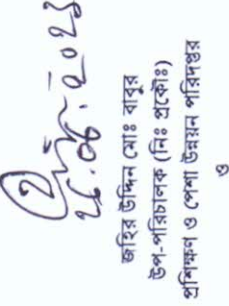 জহির উদ্দিন মোঃ বাবুর
উপ-পরিচালক (নিঃ প্রকৌঃ)
প্রশিক্ষণ ও পেশা উন্নয়ন পরিদপ্তর
ও